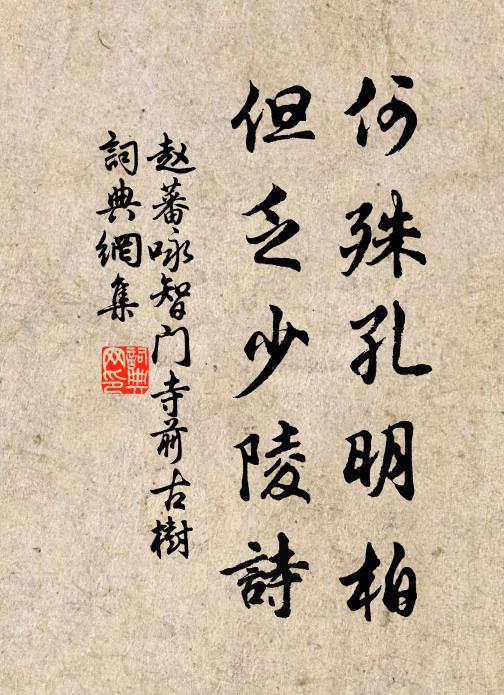 何殊孔明柏
但乏少陵詩
赵蕃咏智门寺前古樹
詞典網集
詞典
网印